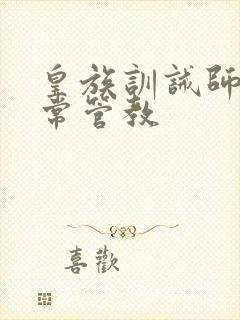 皇族訓誡師
常管教
喜歡